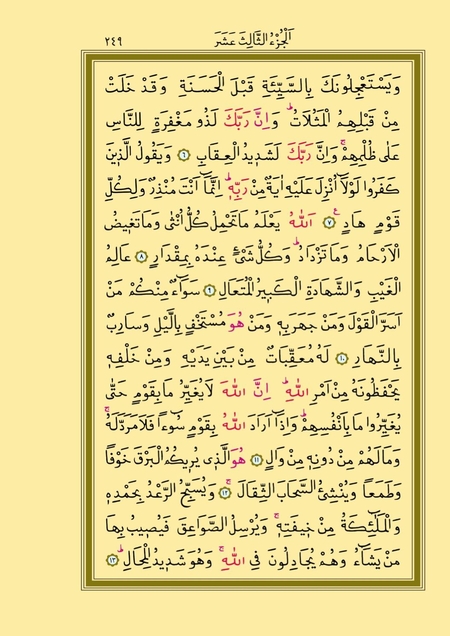 اَلْجُزْءُ الثَّالِثَ عَشَرَ ٢٤٩
وَيَسْتَعْجِلُونَكَ بِالسَّيِّئَةِ قَبْلَ الْحَسَنَةِ وَقَدْ خَلَتْ
مِنْ قَبْلِهِمُ الْمَثُلَاتُۜ وَاِنَّ رَبَّكَ لَذُو مَغْفِرَةٍ لِلنَّاسِ
عَلٰى ظُلْمِهِمْۚ وَاِنَّ رَبَّكَ لَشَدِيدُ الْعِقَابِ ﴿٦﴾ وَيَقُولُ الَّذِينَ
كَفَرُوا لَوْلَٓا اُنْزِلَ عَلَيْهِ اٰيَةٌ مِنْ رَبِّهِۜ اِنَّمَٓا اَنْتَ مُنْذِرٌ وَلِكُلِّ
قَوْمٍ هَادٍ۟ ﴿٧﴾ اَللّٰهُ يَعْلَمُ مَا تَحْمِلُ كُلُّ اُنْثٰى وَمَا تَغِيضُ
الْاَرْحَامُ وَمَا تَزْدَادُۜ وَكُلُّ شَيْءٍ عِنْدَهُ بِمِقْدَارٍ ﴿٨﴾ عَالِمُ
الْغَيْبِ وَالشَّهَادَةِ الْكَبِيرُ الْمُتَعَالِ ﴿٩﴾ سَوَٓاءٌ مِنْكُمْ مَنْ
اَسَرَّ الْقَوْلَ وَمَنْ جَهَرَ بِهِ وَمَنْ هُوَ مُسْتَخْفٍ بِالَّيْلِ وَسَارِبٌ
بِالنَّهَارِ ﴿١٠﴾ لَهُ مُعَقِّبَاتٌ مِنْ بَيْنِ يَدَيْهِ وَمِنْ خَلْفِهِ
يَحْفَظُونَهُ مِنْ اَمْرِ اللّٰهِۜ اِنَّ اللّٰهَ لَا يُغَيِّرُ مَا بِقَوْمٍ حَتّٰى
يُغَيِّرُوا مَا بِاَنْفُسِهِمْۜ وَاِذَٓا اَرَادَ اللّٰهُ بِقَوْمٍ سُٓوءًا فَلَا مَرَدَّ لَهُۚ
وَمَا لَهُمْ مِنْ دُونِهِ مِنْ وَالٍ ﴿١١﴾ هُوَ الَّذِي يُرِيكُمُ الْبَرْقَ خَوْفًا
وَطَمَعًا وَيُنْشِئُ السَّحَابَ الثِّقَالَۚ ﴿١٢﴾ وَيُسَبِّحُ الرَّعْدُ بِحَمْدِهِ
وَالْمَلٰٓئِكَةُ مِنْ خِيفَتِهِۚ وَيُرْسِلُ الصَّوَاعِقَ فَيُصِيبُ بِهَا
مَنْ يَشَٓاءُ وَهُمْ يُجَادِلُونَ فِي اللّٰهِۚ وَهُوَ شَدِيدُ الْمِحَالِۜ ﴿١٣﴾